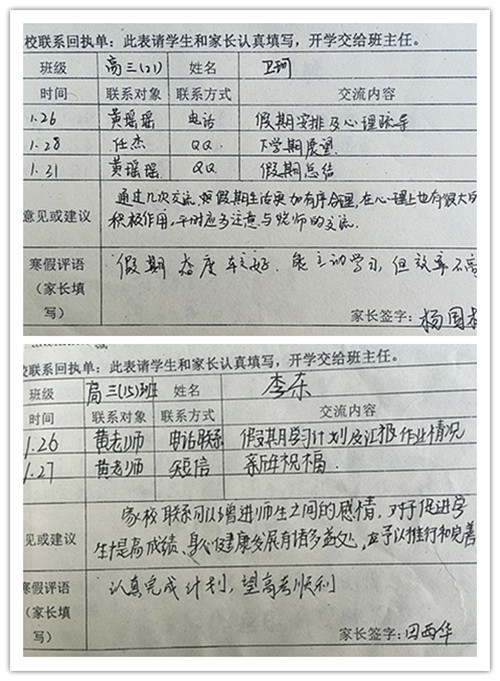 校联系回执单：此表请学生和家长认真填写，开学交给班主任。
班级 高三(21) 姓名 卫珂
时间 联系对象 联系方式 交流内容
1.26 黄瑶瑶 电话 假期安排及心理疏导
1.28 任杰 QQ 下学期展望
1.31 黄瑶瑶 QQ 假期总结
通过几次交流，假期生活更加有序合理，在心理上也有很大的
意见或建议 积极作用，平时应多注意与老师的交流.
寒假评语 假期态度较好，能主动学习，但效率不高
（家长填
写）
家长签字：杨国
校联系回执单：此表请学生和家长认真填写，开学交给班主任。
班级 高三(15)班 姓名 李东
时间 联系对象 联系方式 交流内容
1.26 黄老师 电话联系 假期学习计划及汇报作业情况
1.27 黄老师 短信 新年祝福
家校联系可以增进师生之间的感情，对于促进学
见或建议 生提高成绩、身心健康发展有诸多益处，应予以推行和完善
寒假评语 认真完成计划，望高考顺利
（家长填
写）
家长签字：田西华